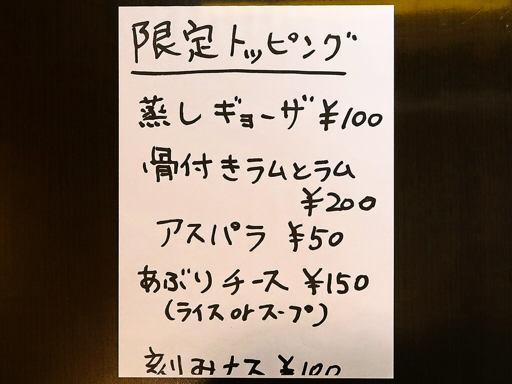 限定トッピング
蒸しギョーザ ¥100
骨付きラムとラム
¥200
アスパラ ¥50
あぶりチース ¥150
(ライス or スープ)
刻みナス ¥100